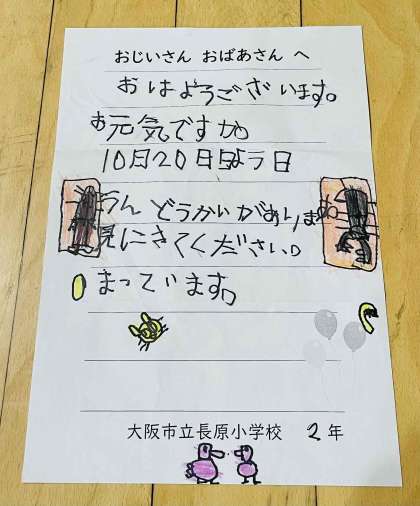 おじいさん おばあさん へ
おはようございます。
お元気ですか。
10月20日日ようび日
うんどうかいがあります。
見にきてください。
まっています。
大阪市立長原小学校 2年